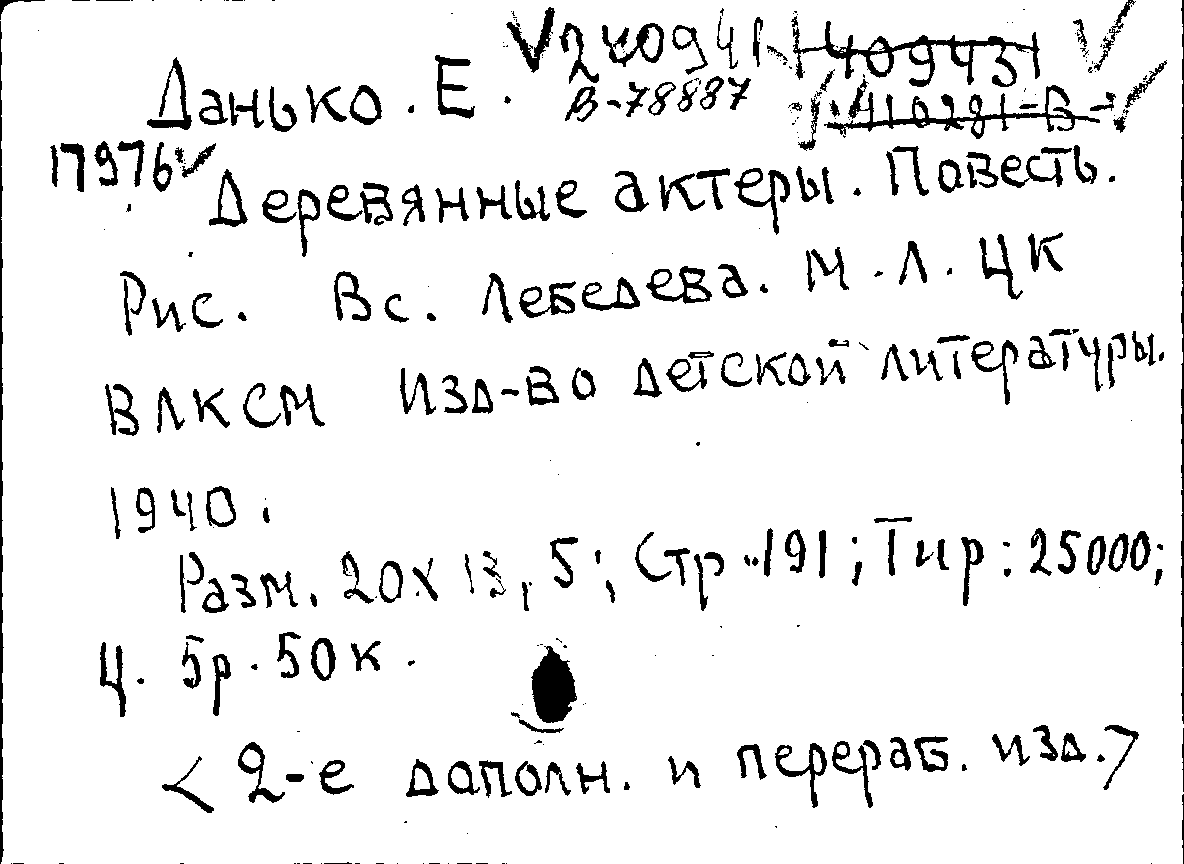 Данько. Е. V240941 409431 V
В-78887 410281-В
17976 V
Деревянные актеры. Повесть.
Рис. Вс. Лебедева. М.-Л. ЦК
ВЛКСМ Изд-во детской литературы.
1940.
Разм. 20х13,5; Стр. 191; Тир: 25000;
Ц. 5р. 50к.
<2-е дополн. и перераб. изд.>